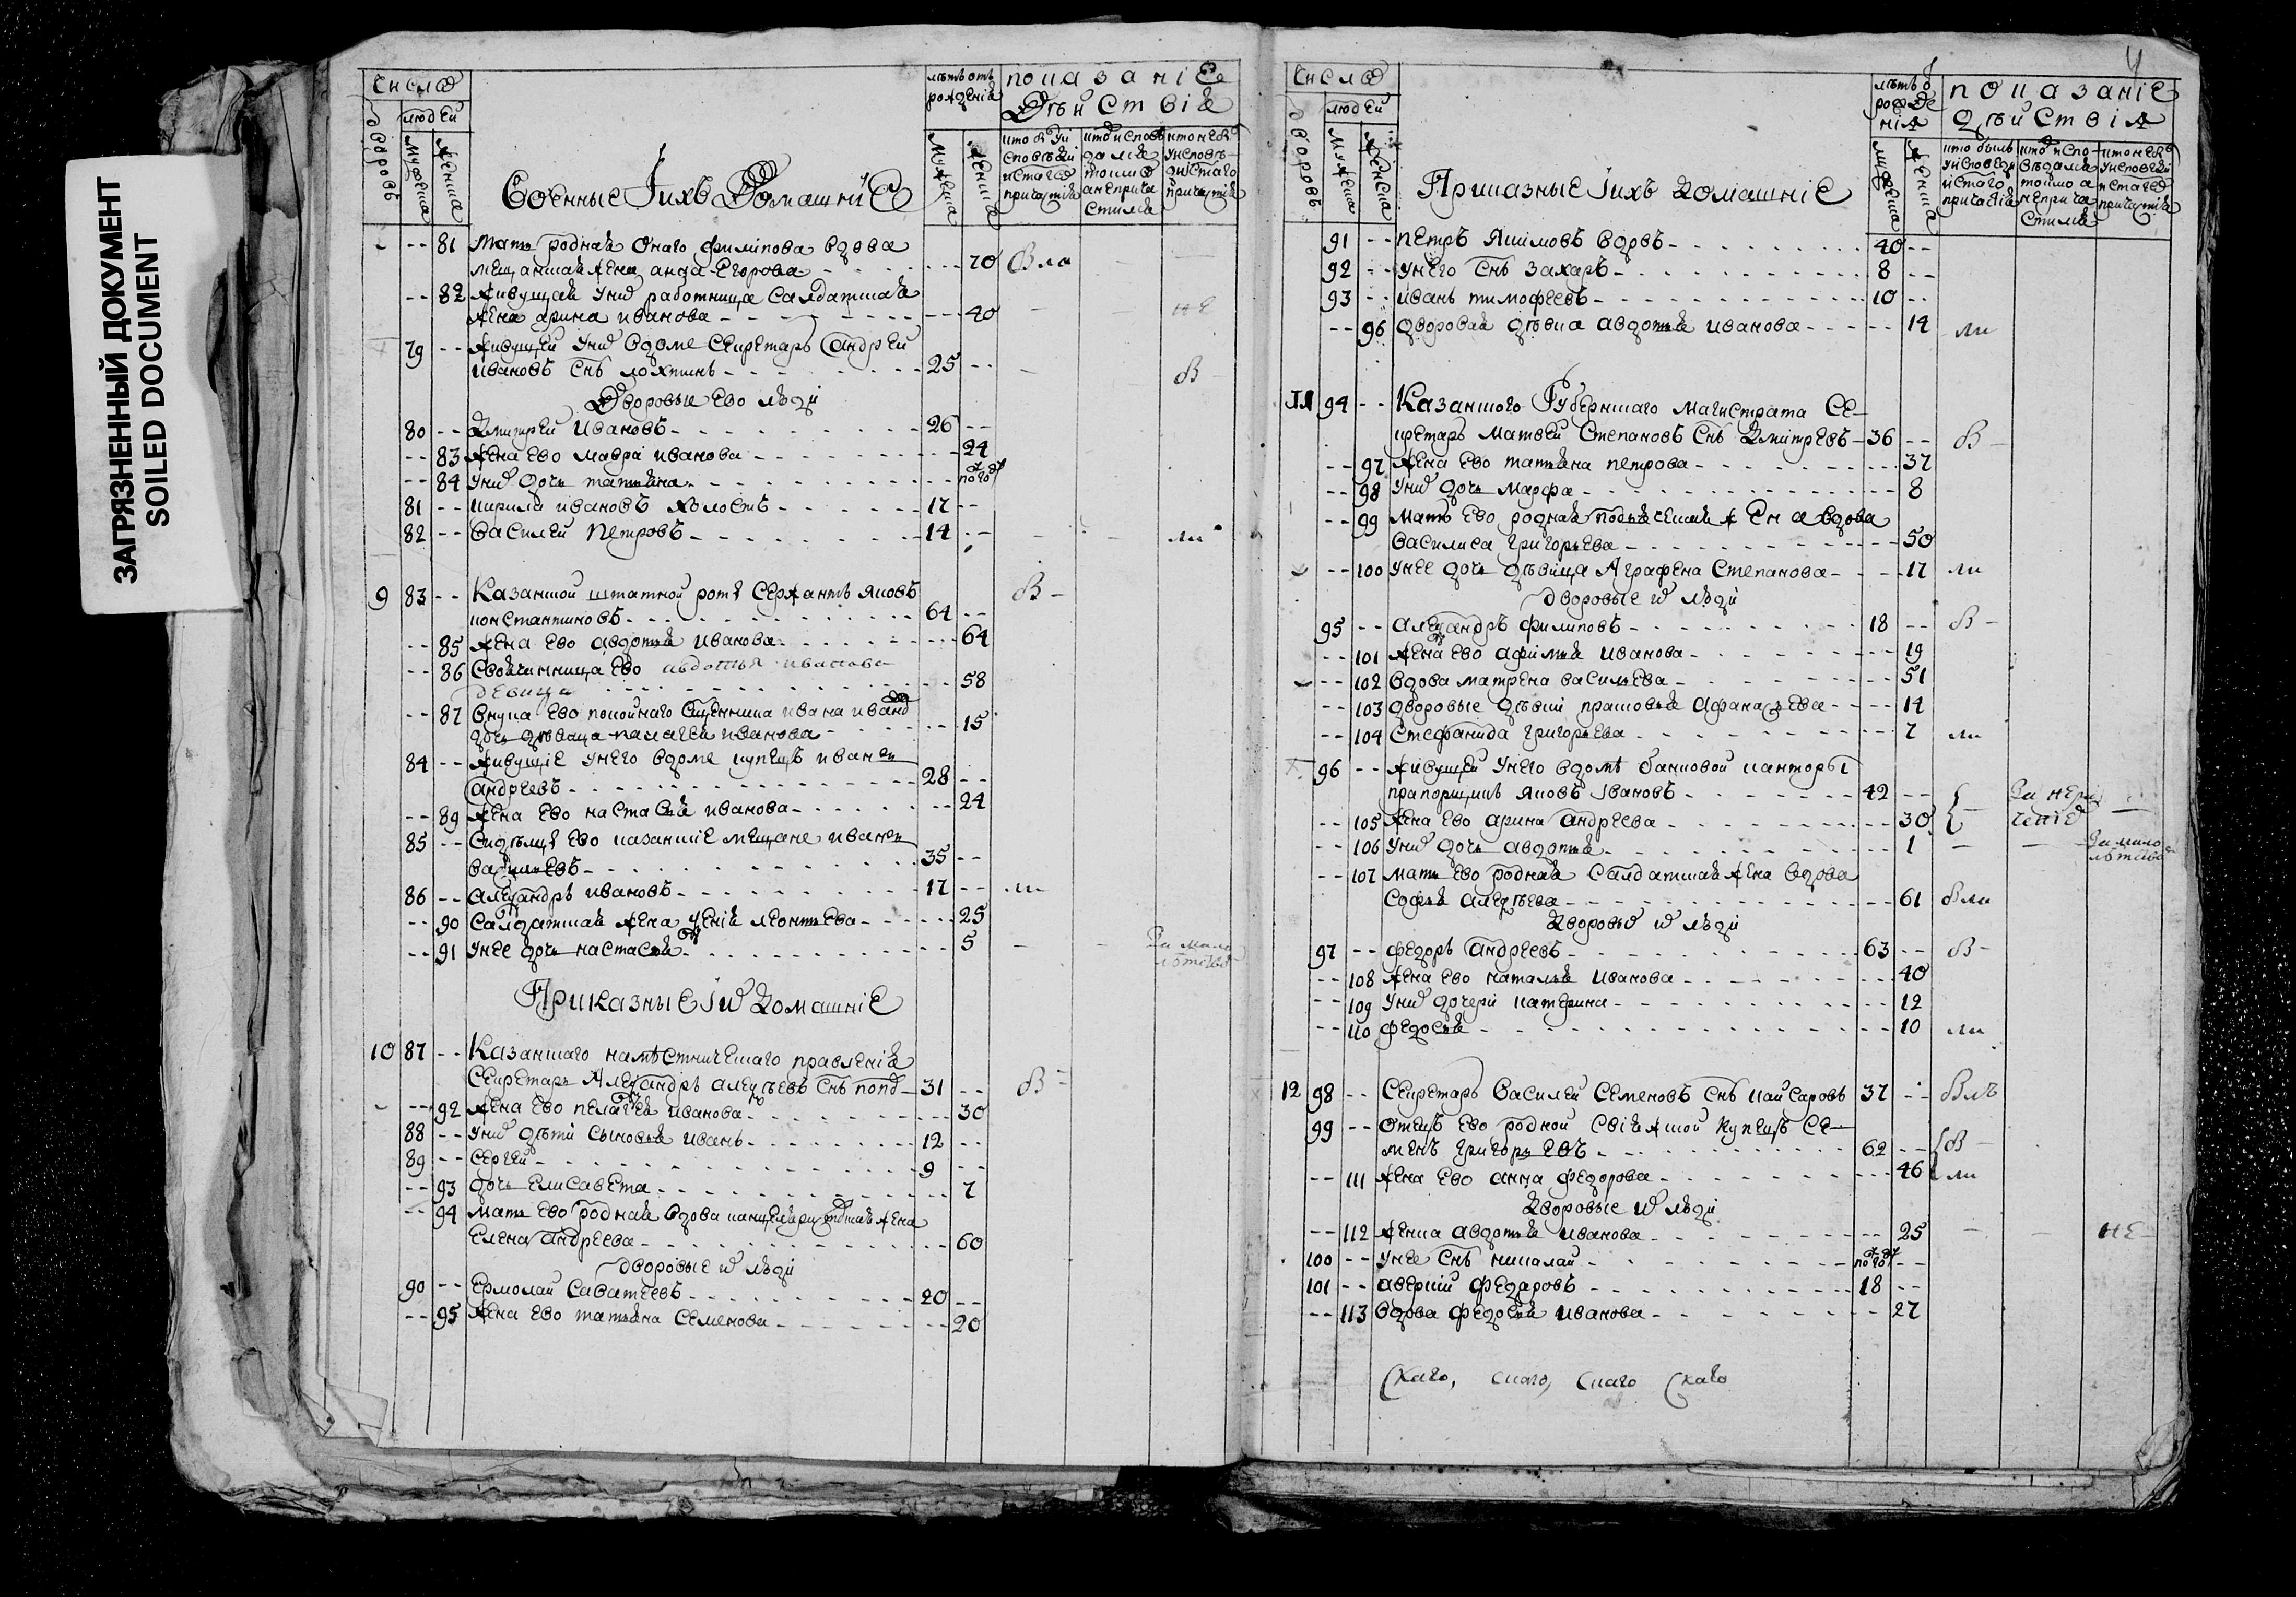 ЗАГРЯЗНЕННЫЙ ДОКУМЕНТ
SOILED DOCUMENT
Число
дворовъ
людей
мужеска
женска
Военные і ихъ домашніе
лѣтъ отъ
рожденія
мужеска
женска
показаніе
дѣйствія
81 мать родная онаго филипова вдова
мещанская жена анна Егорова 70 вла
82 живущая у них работница салдатская
жена арина иванова 40 не
79 живущей у них в доме секретарь андрей
ивановъ снъ лохтинъ 25 в
дворовые ево люди
80 дмитрей ивановъ 26
83 жена ево мавра иванова 24
84 у них дочь татьяна
81 кирила ивановъ холостъ 17
82 василей петровъ 14 ли
9 83 Казанской штатной роты сержантъ яковъ в
константиновъ 64
85 жена ево авдотья иванова 64
86 свойчинница ево авдотья иванова
девица 58
87 внука ево покойнаго священника ивана иванова
дочь девица палагея иванова 15
84 живущіе у него в доме купецъ иванъ
андреевъ 28
89 жена ево настасья иванова 24
85 сиделцы ево казанскіе мещане иванъ
васильевъ 35
86 александръ ивановъ 17 ли
90 салдатская жена ксенія леонтьева 25
91 у нее дочь настасья 5 за мало
лѣтство
Приказные і их домашніе
10 87 Казанскаго намѣстническаго правленія
секретарь александръ алексѣевъ снъ попов 31 в
92 жена ево пелагея иванова 30
88 у них дѣти сыновья иванъ 12
89 сергей 9
93 дочь елисавета 7
94 мать ево родная вдова канцеляристская жена
елена андреева 60
дворовые их люди
90 ермолай саватеевъ 20
95 жена ево татьяна семенова 20
4
Число
дворовъ
людей
мужеска
женска
Приказные і ихъ домашніе
лѣтъ от
рожде
нія
мужеска
женска
показаніе
дѣйствія
91 петръ якимовъ вдовъ 40
92 у него снъ захаръ 8
93 иванъ тимофеевъ 10
96 дворовая дѣвка авдотья иванова 14 ли
11 94 Казанскаго губернскаго магистрата се
кретарь матвей степановъ снъ дмитревъ 36 в
97 жена ево татьяна петрова 37
98 у них дочь марфа 8
99 мать ево родная подьяческая жена вдова
василиса григорьева 50
100 у нее дочь дѣвица аграфена степанова 17 ли
дворовые их люди
95 александръ филиповъ 18 в
101 жена ево афимья иванова 19
102 вдова матрена васильева 51
103 дворовые дѣвки прасковья афанасьева 14
104 стефанида григорьева 7 ли
96 живущей у него в домѣ банковой канторы
прапорщикъ яковъ івановъ 42 за нера
105 жена ево арина андреева 30 чениѣ
106 у них дочь авдотья 1 за мало
лѣтство
107 мать ево родная салдатская жена вдова
софья алексѣева 61 вли
дворовые их люди
97 федоръ андреевъ 63 в
108 жена ево наталья иванова 40
109 у них дочери катерина 12
110 федосья 10 ли
12 98 секретарь василей семеновъ снъ кайсаровъ 37 влъ
99 отецъ ево родной свіяжской купецъ се
менъ григорьевъ 62 в
111 жена ево анна федорова 46 ли
дворовые их люди
112 женка авдотья иванова 25 не
100 у нее снъ николай
101 аверкий федаровъ 18
113 вдова федосья иванова 27
скаго, скаго, скаго скаго